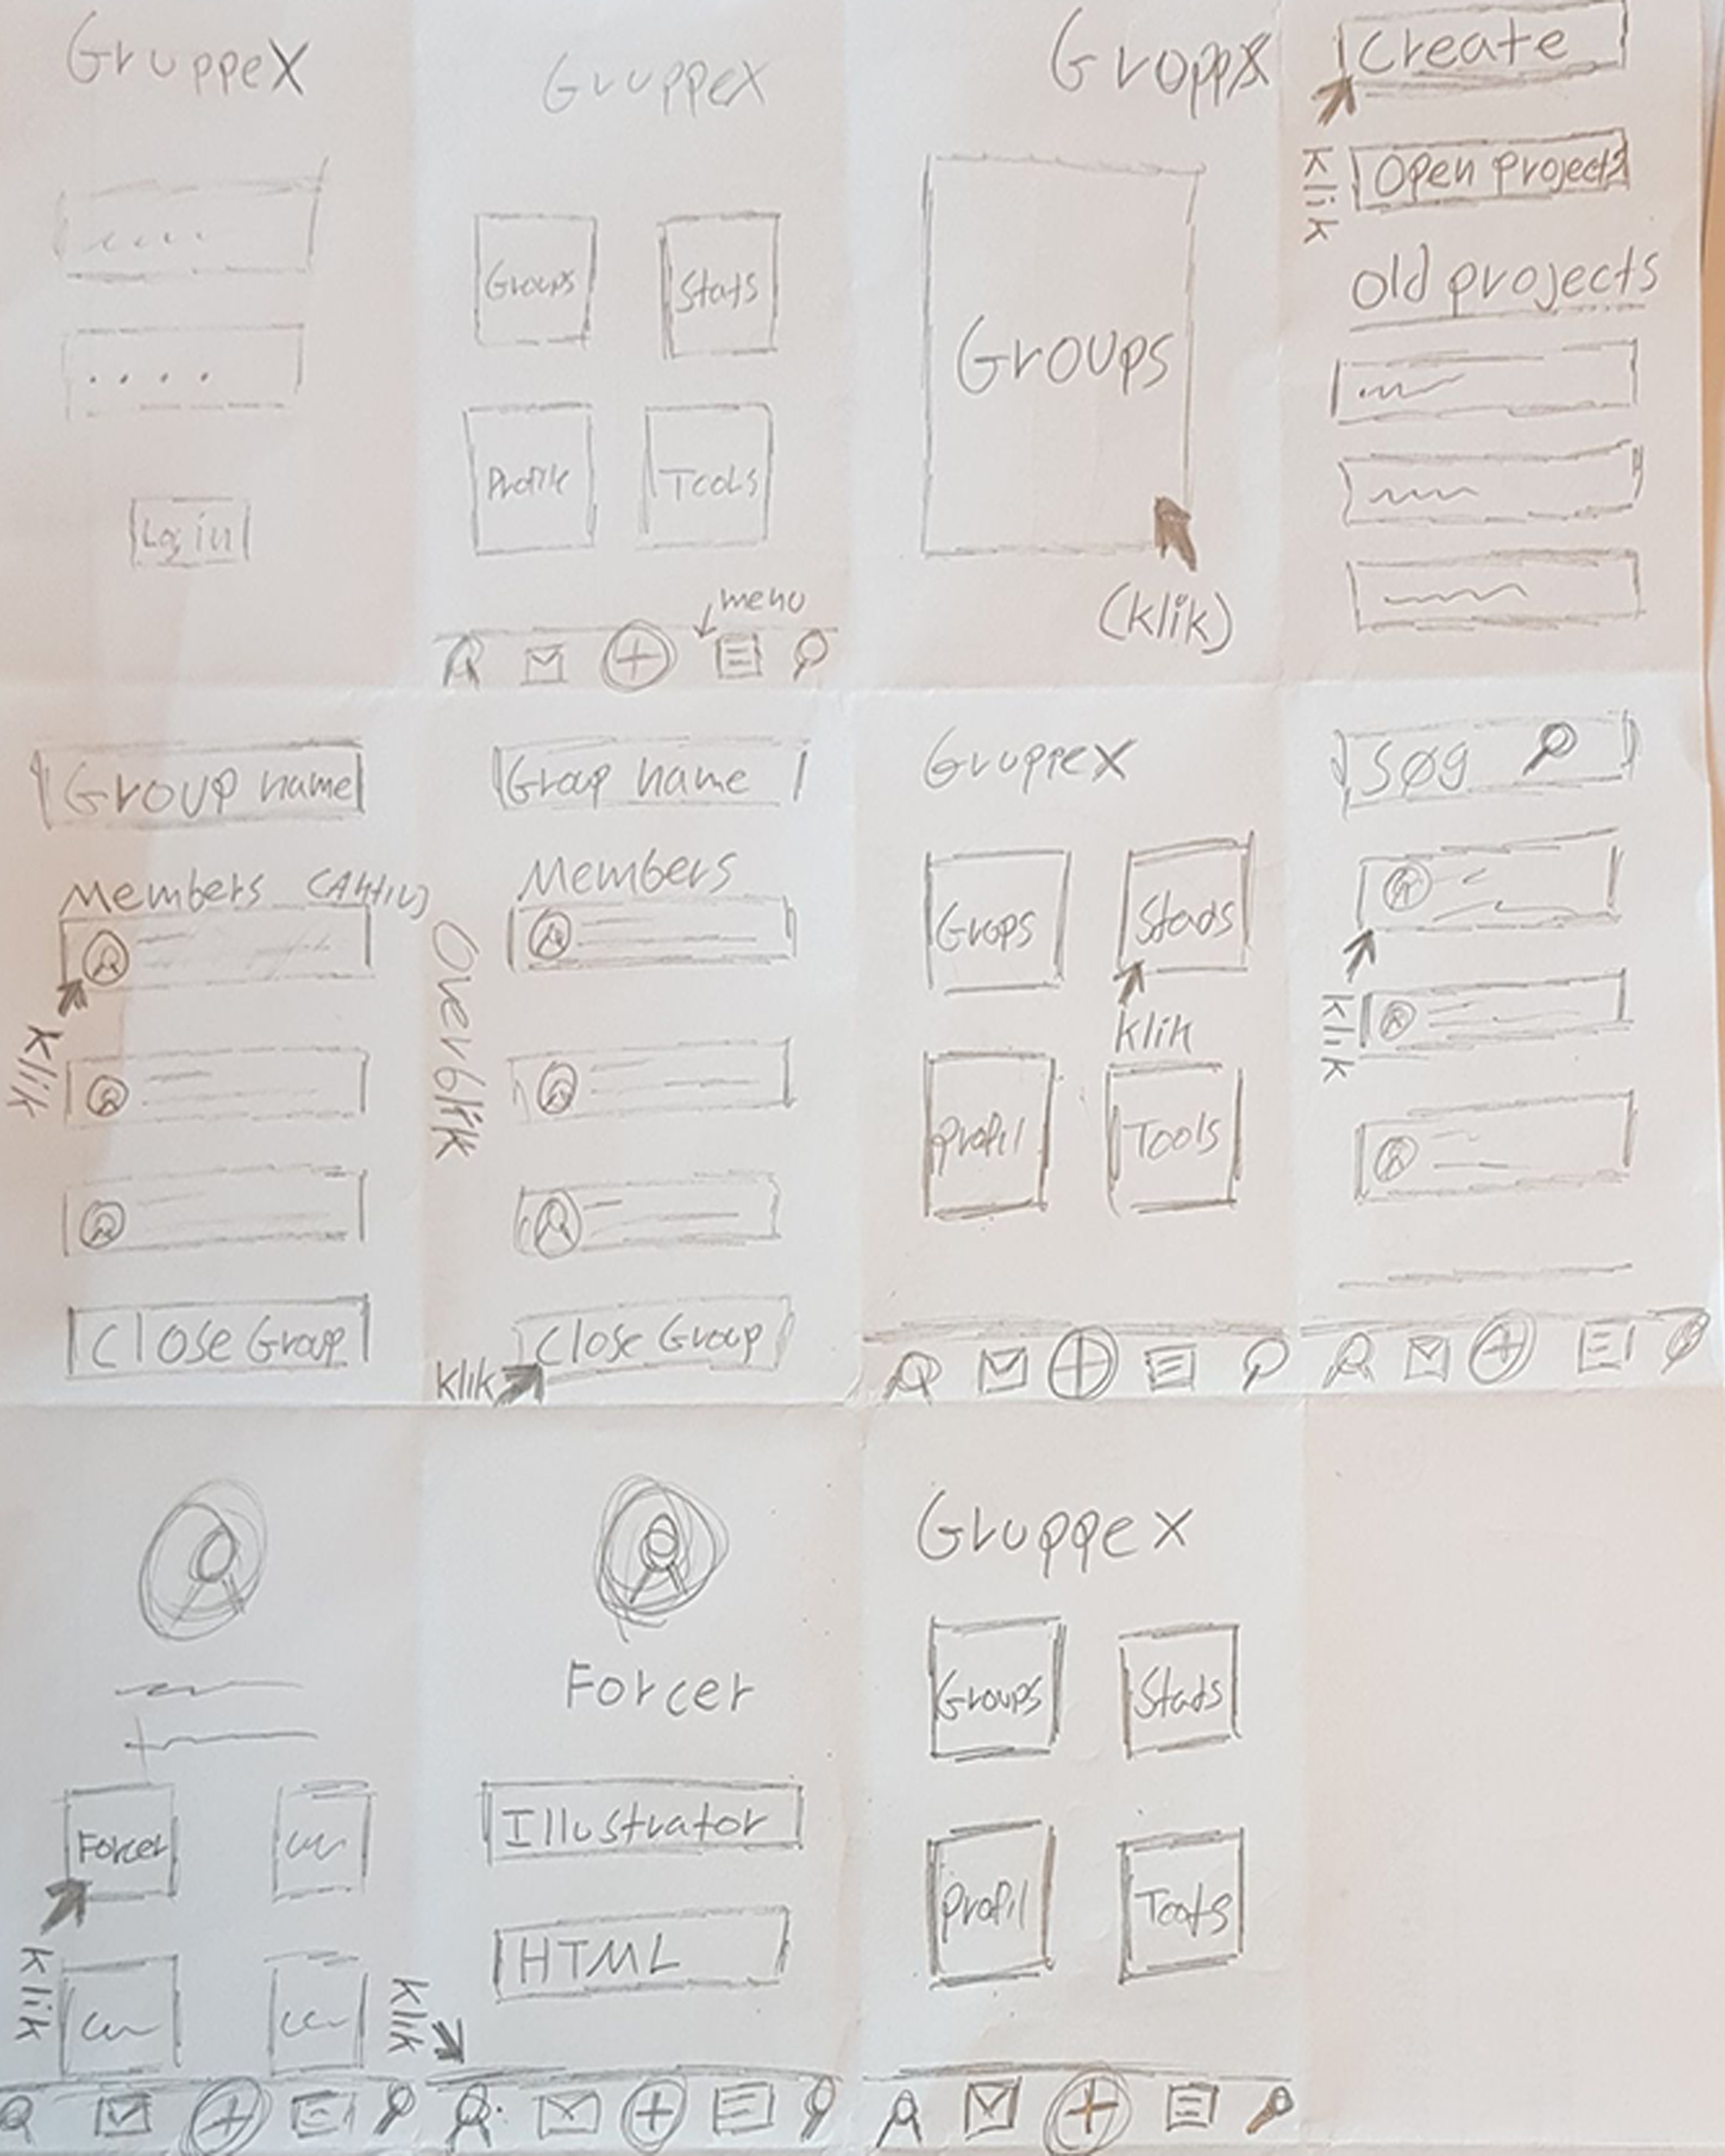 GruppeX
Login
GruppeX
Groups
Stats
Profile
Tools
menu
GroppX
Groups
(klik)
Create
klik
Open projects
old projects
Group name
Members
klik
Close Group
Group name
Members
Overblik
Close Group
klik
GruppeX
Grops
Stads
klik
profil
Tools
Søg
klik
Forcer
klik
Forcer
Illustrator
HTML
klik
GruppeX
Groups
Stads
profil
Tools